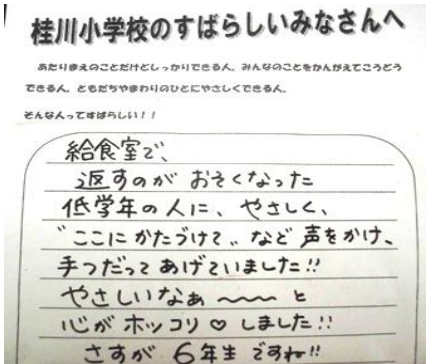 桂川小学校のすばらしいみなさんへ
あたりまえのことだけどしっかりできる人。みんなのことをかんがえてこうどう
できる人。ともだちやまわりのひとにやさしくできる人。
そんな人ってすばらしい！！
給食室で、
返すのが おそくなった
低学年の人に、やさしく、
"ここに かたづけて〟など 声をかけ、
手つだって あげていました!!
やさしいなぁ〜〜〜 と
心が ホッコリ♡ しました!!
さすが 6年生 ですね!!